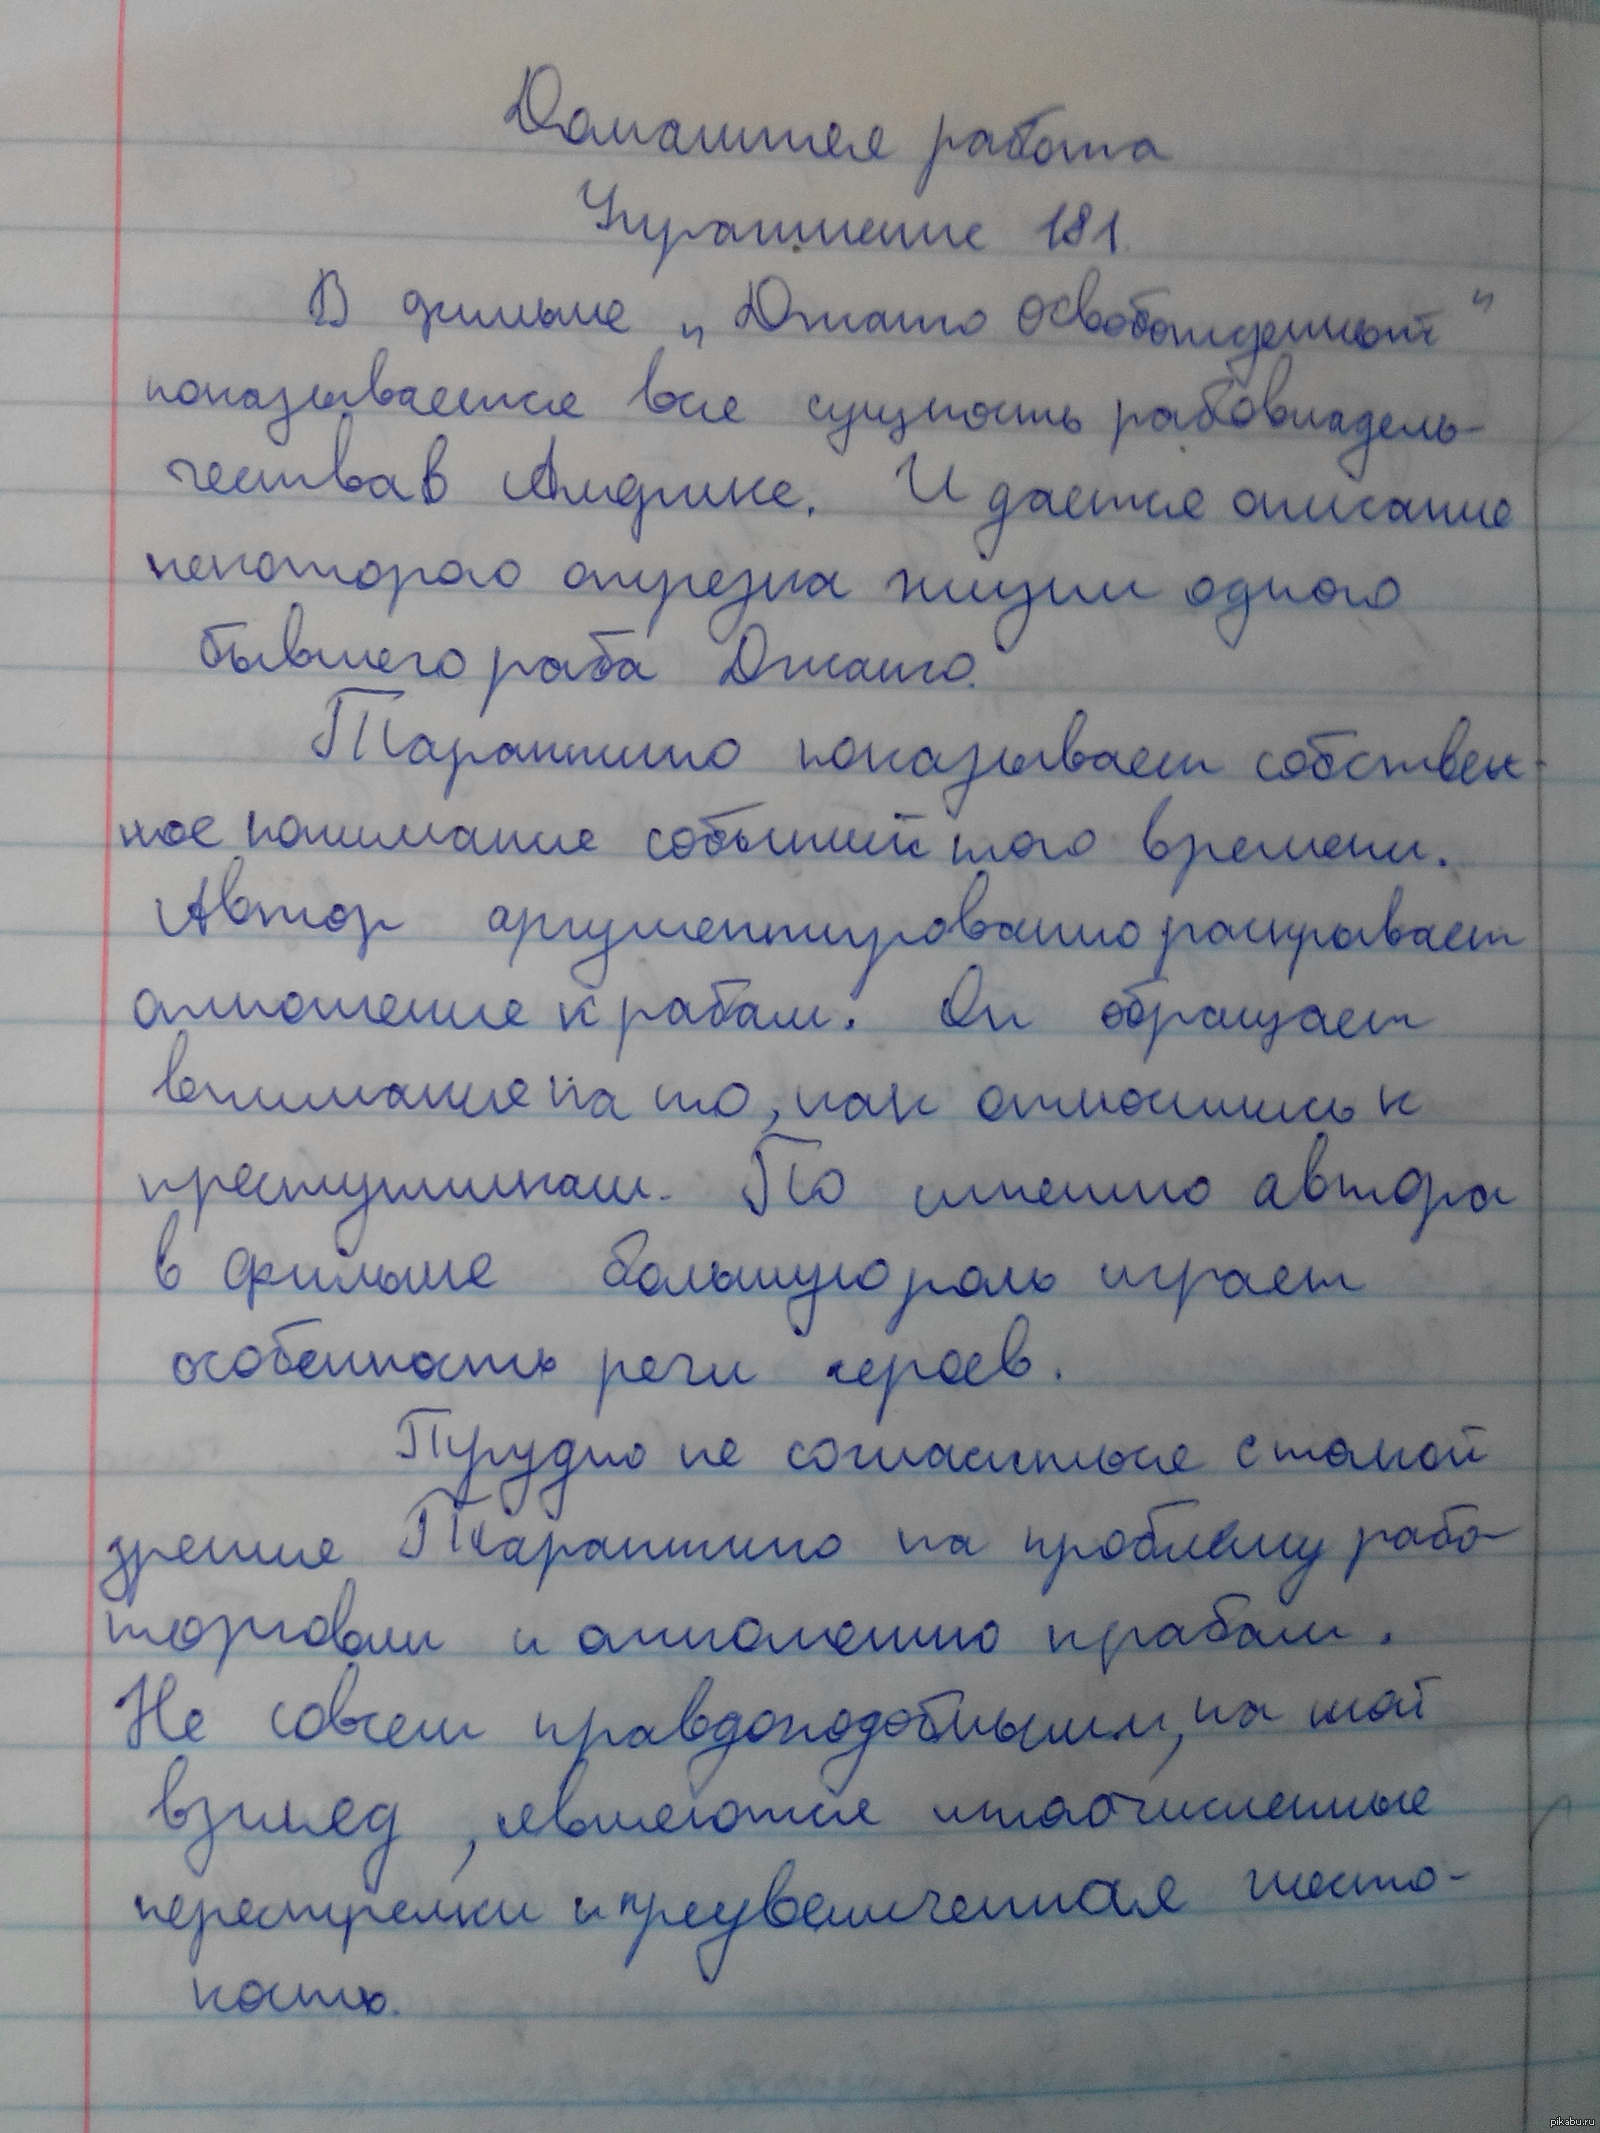 Домашняя работа
Упражнение 181.
В фильме „Джанго освобожденный"
показывается вся сущность рабовладель-
чества в Америке. И дается описание
некоторого отрезка жизни одного
бывшего раба Джанго.
Тарантино показывает собствен-
ное понимание событий того времени.
Автор аргументированно раскрывает
отношение к рабам. Он обращает
внимание на то, как относились к
преступникам. По мнению автора
в фильме большую роль играет
особенность речи героев.
Трудно не согласиться с такой
зрения Тарантино на проблему рабо-
торговли и отношению к рабам.
Не совсем правдоподобными, на мой
взгляд, являются многочисленные
перестрелки и преувеличенная жесто-
кость.
pikabu.ru